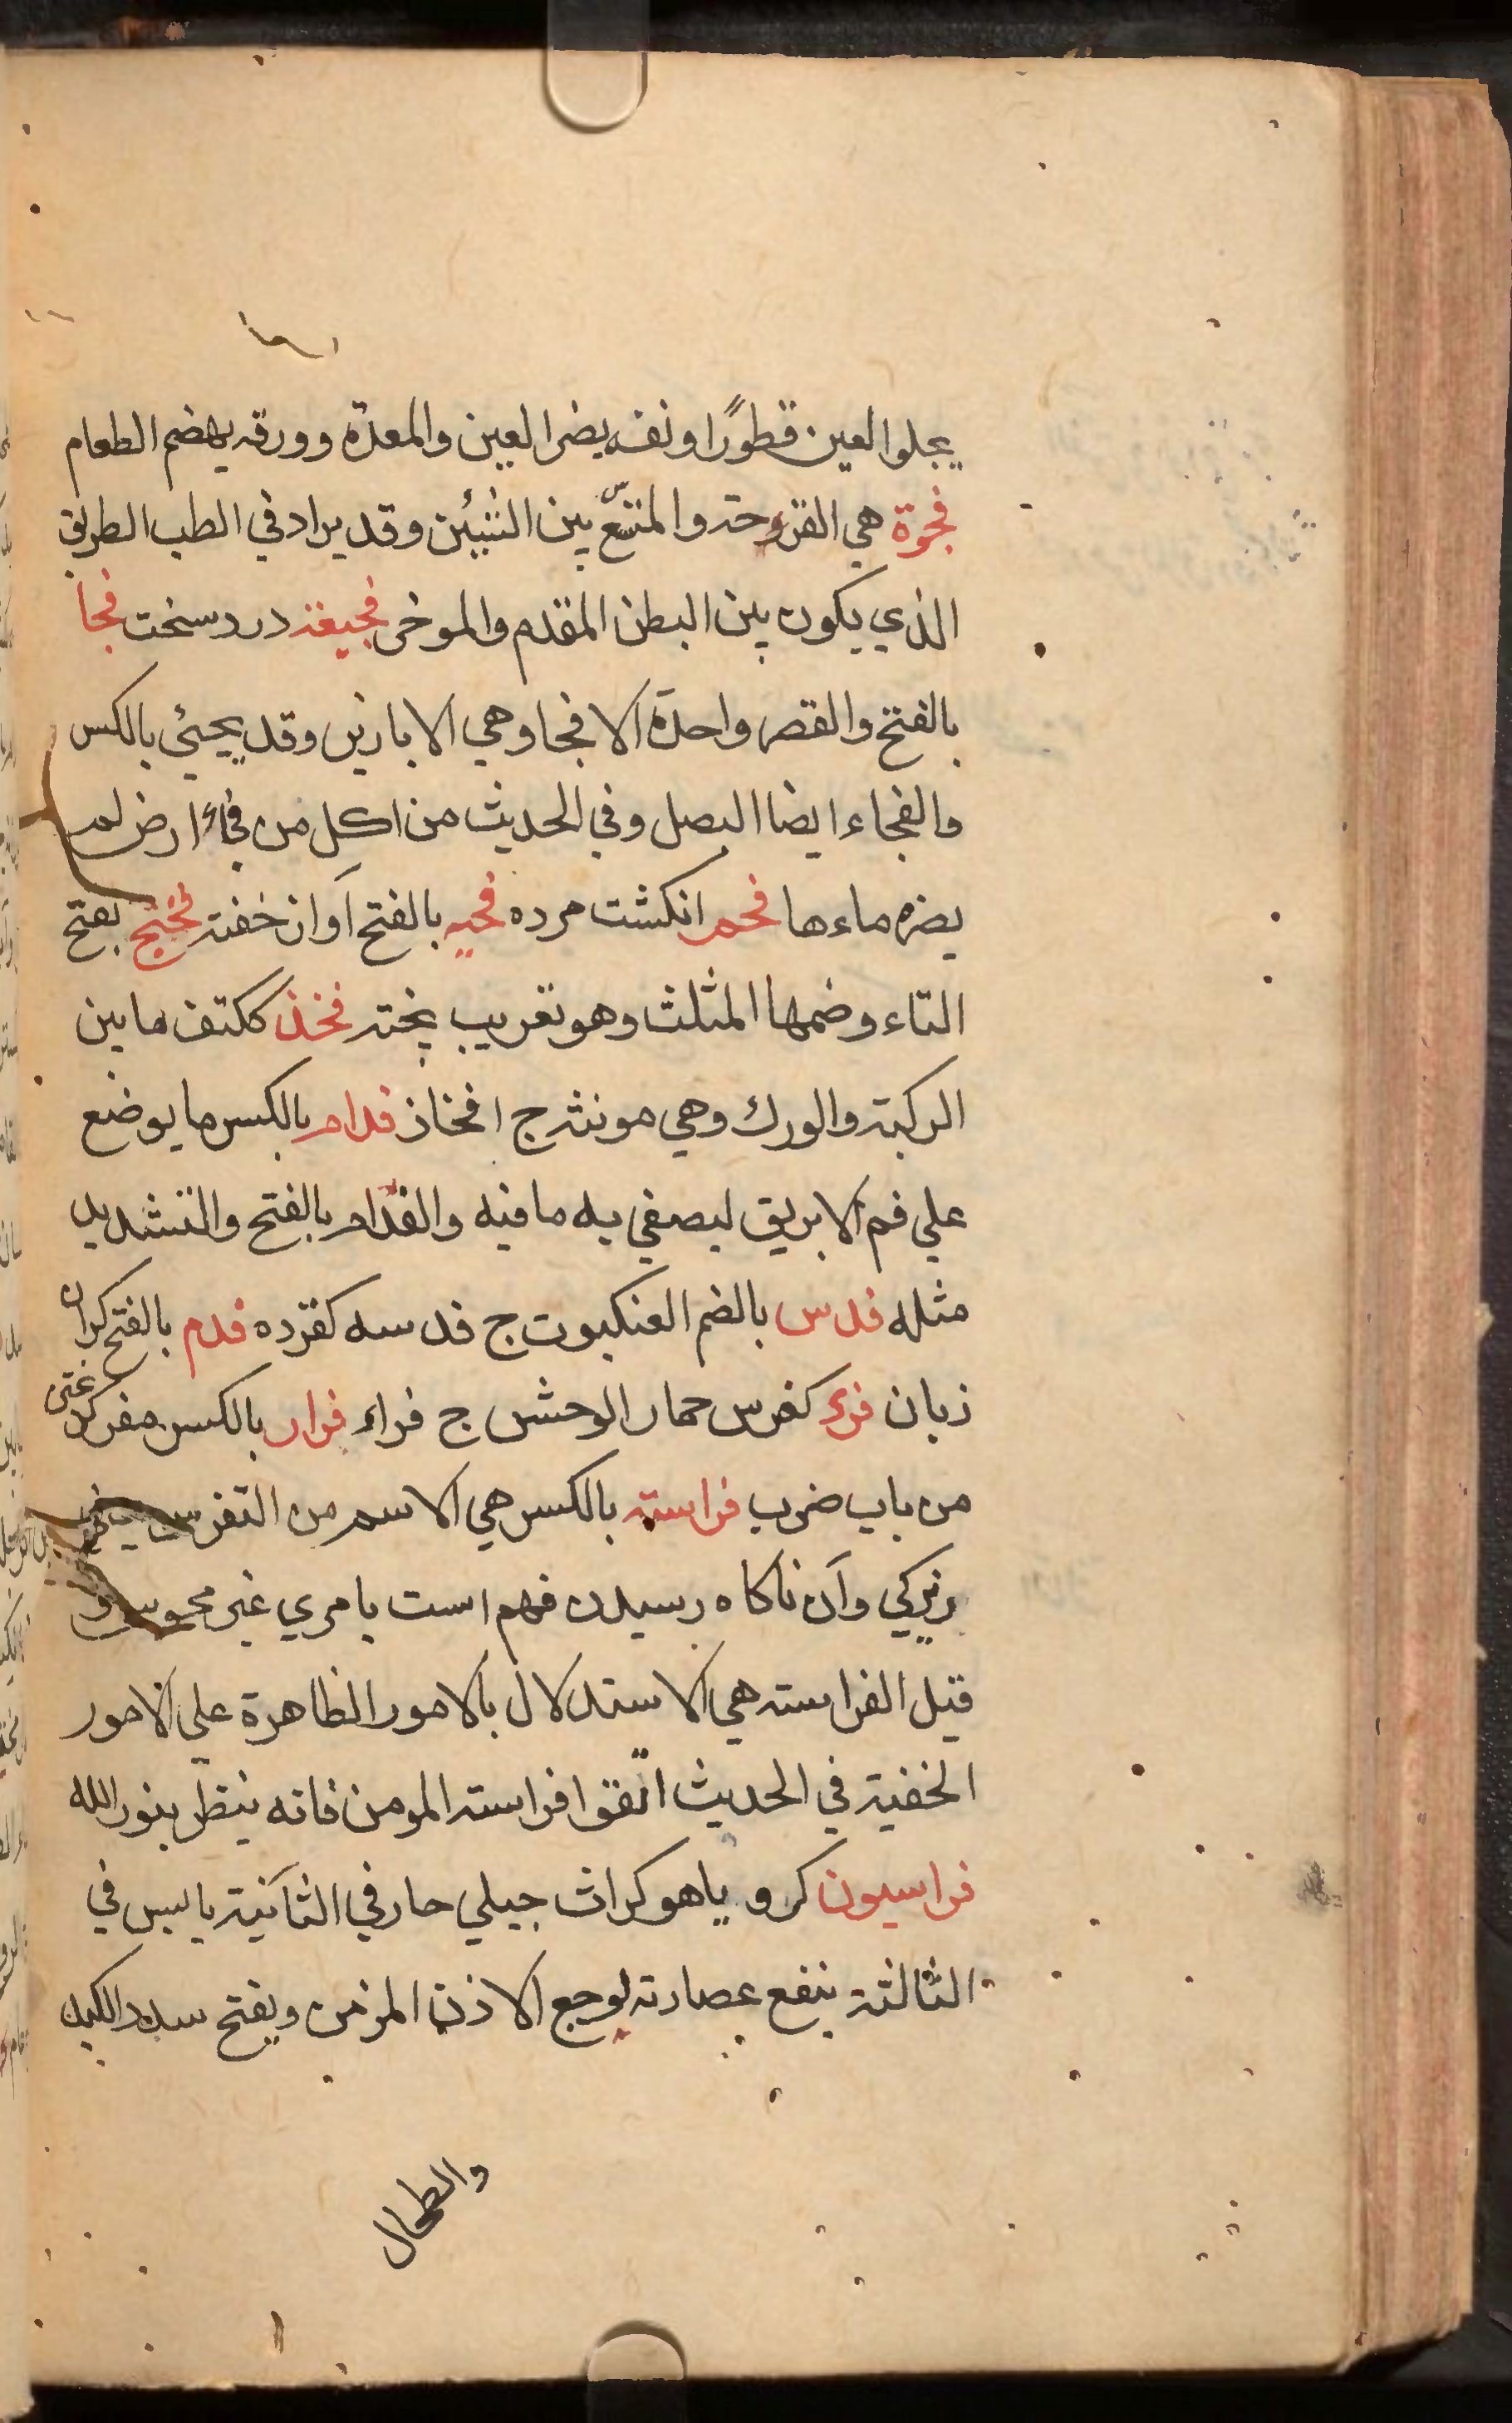 يجلوا العين قطورًا ونفسه يضر العين والمعدة وورقه يهضم الطعام
فجوة هي الفرجة والمتسّع بين الشيئين وقد يراد في الطب الطريق
الذي يكون بين البطن المقدم والموخر فجيعة درد سخت فجا
بالفتح والقصر واحدة الافجا وهي الابازير وقد يجئي بالكسر
والفجاء ايضا البصل وفي الحديث من اكل من فجاء ارض لم
يضره ماءها فحم انكشت مرده فحيه بالفتح آواز خفته فختج بفتح
التاء وضمها المثلث وهو تعريب پخته فخذ ككتف ما بين
الركبة والورك وهي مونثة ج افخاذ فدام بالكسر ما يوضع
علي فم الابريق ليصفي به ما فيه والفدّام بالفتح والتشديد
مثله فدس بالضم العنكبوت ج فدسه كقرده فدم بالفتح كران
زبان فرء كفرس حمار الوحش ج فراء فرار بالكسر
من باب ضرب فراسته بالكسر هي الاسم من التفرس يعني
زيركي وآن ناكاه رسيدن فهم است بامري غير محسوس و
قيل الفراسته هي الاستدلال بالامور الظاهرة علي الامور
الخفية في الحديث اتّقوا فراسته المومن فانه ينظر بنور الله
فراسيون كرو ياهو كراث جبلي حار في الثانية يابس في
الثالثة ينفع عصارته لوجع الاذن المزمن ويفتح سدد الكبد
والطحال